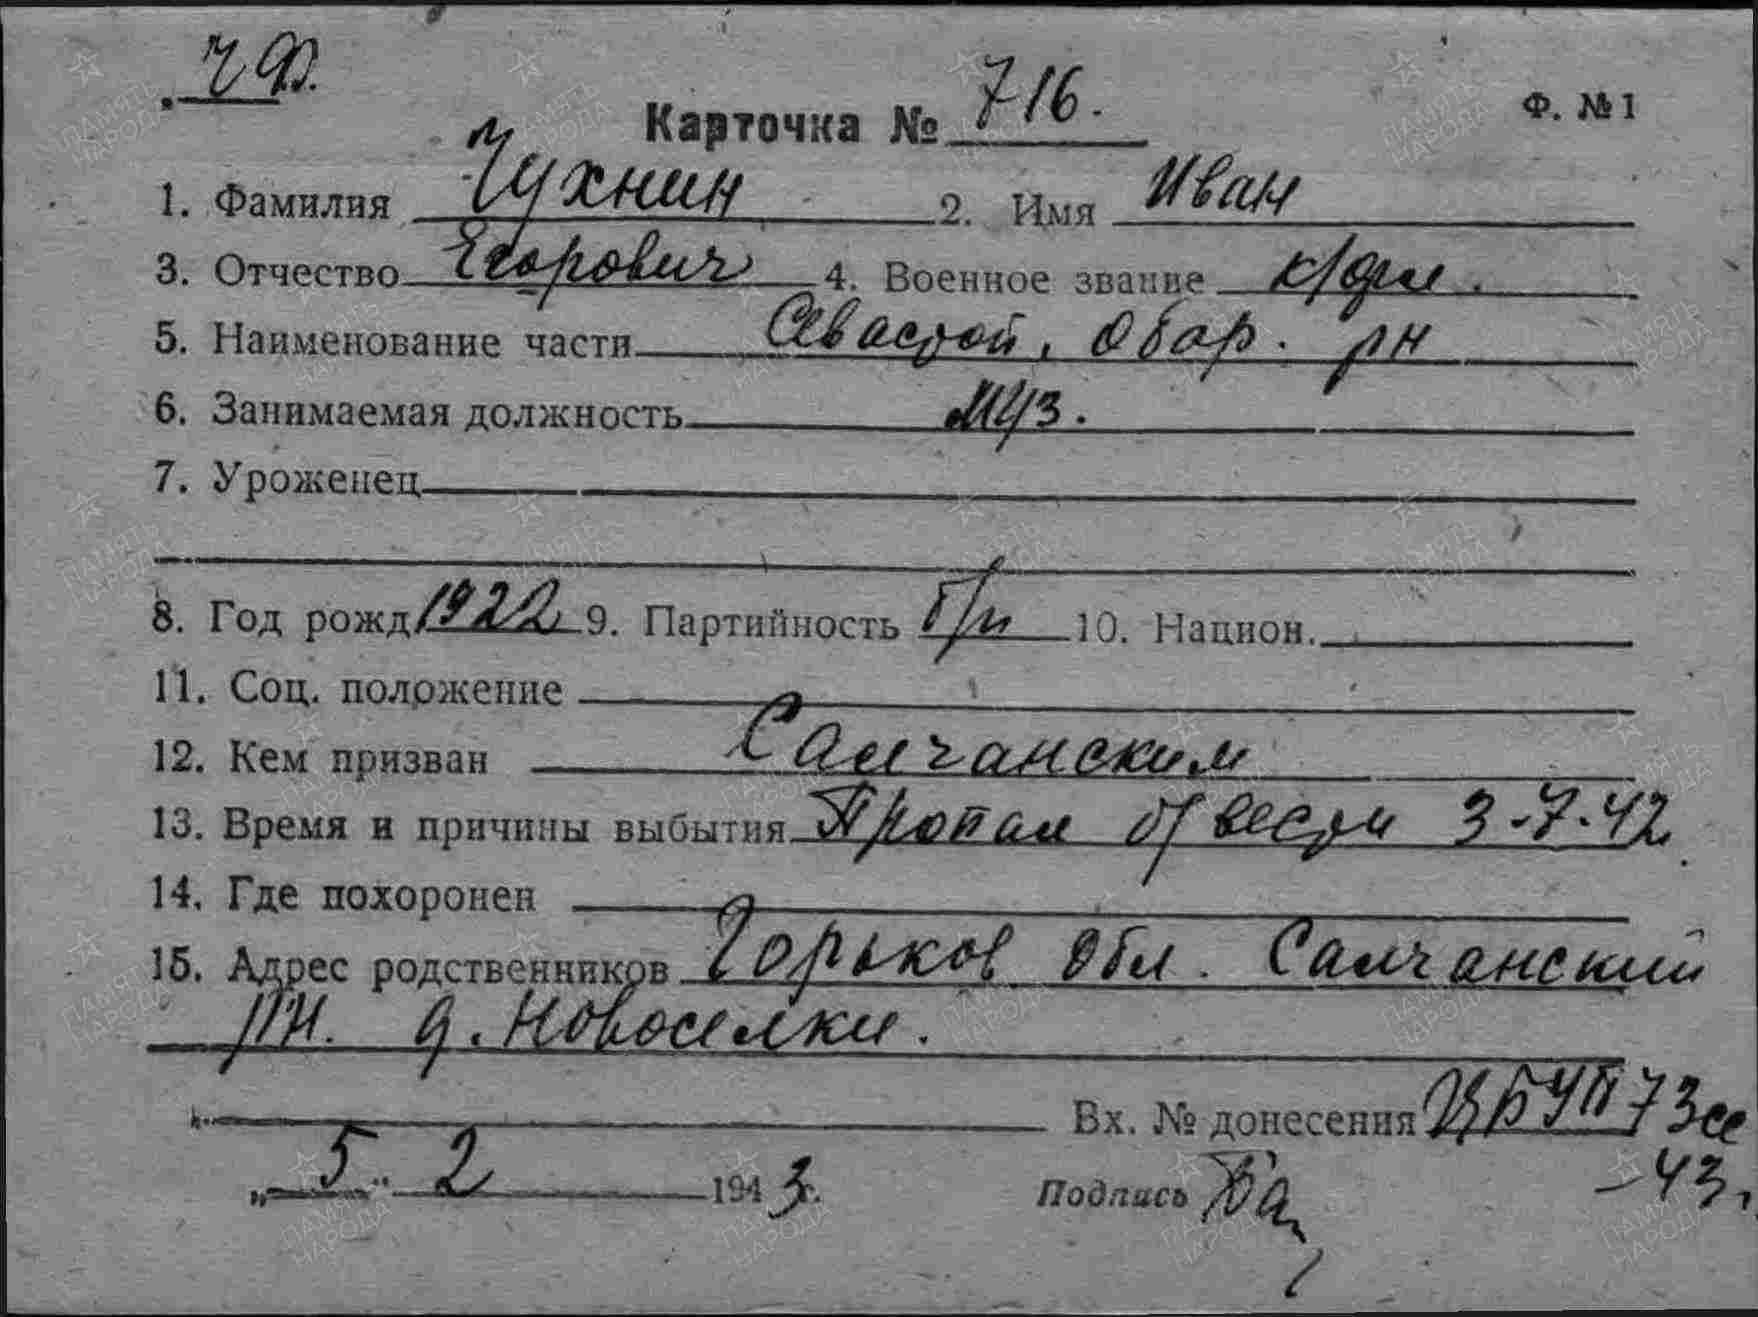 ЧФ.
Карточка № 716.
Ф. №1
1. Фамилия Чухнин 2. Имя Иван
3. Отчество Егорович 4. Военное звание к/фл.
5. Наименование части Севастоп. Обор. рн
6. Занимаемая должность Муз.
7. Уроженец
8. Год рожд 1922 9. Партийность б/п 10. Национ.
11. Соц. положение
12. Кем призван Салчанским
13. Время и причины выбытия Пропал б/вести 3-7-42
14. Где похоронен
15. Адрес родственников Горьков Обл. Салчанский
рн. д. Новоселки.
Вх. № донесения 73сс
-43.
„5" 2 1943г. Подпись
ПАМЯТЬ НАРОДА